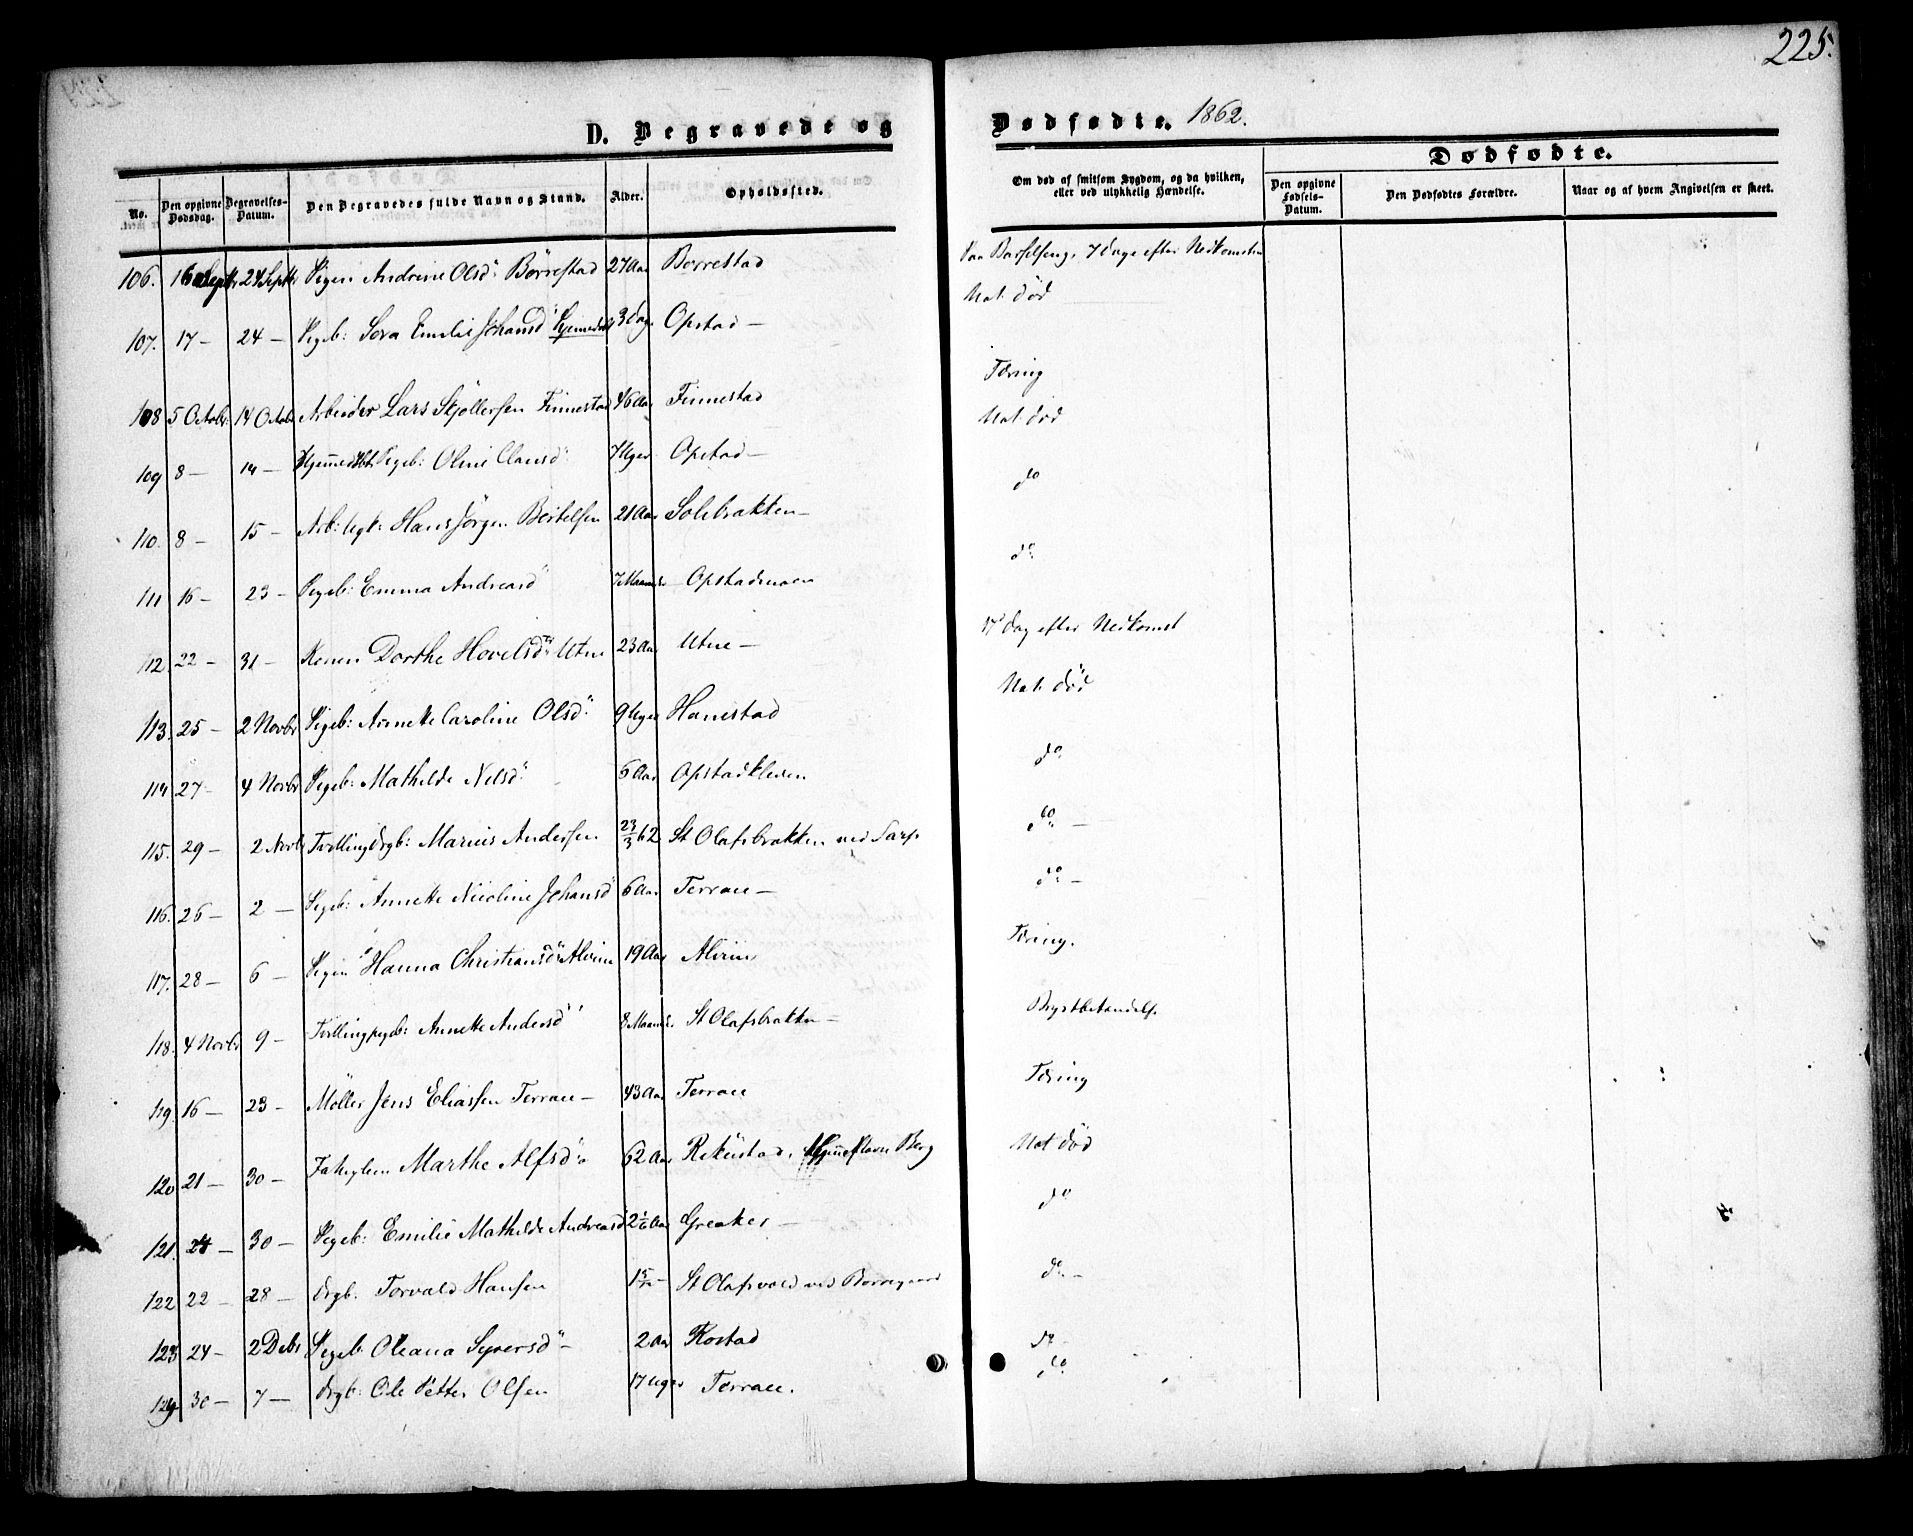 225.
D. Begravede og Dødfødte. 1862.
No. | Den opgivne Dødsdag. | Begravelses-Datum. | Den Begravedes fulde Navn og Stand. | Alder. | Opholdssted. | Om død af smitsom Sygdom, og da hvilken, eller ved ulykkelig Hændelse. | Dødfødte. | Den opgivne Fødsels-Datum. | Den Dødfødtes Forældre. | Naar og af hvem Angivelsen er skeet.
106. 16 Septr 24 Septr Pigen Andrine Olsd: Börrestad 27 Aar Borrestad Paa Barselseng, 7 Dage efter Nedkomsten
107. 17 – 24 – Pigeb: Sora Emilie Johansd: Hjemmedøbt 3 dage Opstad – Nat. død
108 5 Octobr: 14 Octobr Arbeider Lars Skjöllersen Finnestad 46 Aar Finnestad Tæring
109 8 – 14 – Hjemmedøbt Pigeb: Oline Clausd: 7 Uger Opstad – Nat. død
110. 8 – 15 – Arb: Ungk: Hans Jörgen Bertelsen 21 Aar Solebrakken – do
111 16 – 23 – Pigeb: Emma Andreasd: 7 Maaneder Opstadmoen do
112. 22 – 31 – Konen Dorthe Hovelsd: Utne 23 Aar Utne – 17 Dag efter Nedkomst
113. 25 – 2 Novbr Pigeb: Annette Caroline Olsd: 9 Uger Hanestad Nat. død
114 27 – 4 Novbr Pigeb: Mathilde Nelsd: 6 Aar Opstadkleven do
115. 29 – 2 Novbr Tvillingdrgb: Marius Andersen 23/3 62 St Olafsbrakken ved Sarp do –
116. 26 – 2 – Pigeb: Annette Nicoline Johansd: 6 Aar Terran – do –
117. 28 – 6 – Pigen Hanna Christiansd: Alvim 19 Aar Alvim Tæring.
118. 4 Novbr 9 – Tvillingpigeb: Annette Andersd: 8 Maaneder. St Olafsbrakken – Brystbetændelse
119. 16 – 23 – Möller Jens Eliassen Terran – 43 Aar Terran Tæring
120 21 – 30 – Fattiglem Marthe Alfsd: 62 Aar Rekustad, Berg Nat. død
121. 24 – 30 – Pigeb: Emilie Mathilde Andreasd: 2 1/6 Aar Greaker – do
122 22 – 28 – Drgb: Torvald Hansen 1 5/12 – St Olafsvold ved Borregaard do –
123 24 – 2 Debr Pigeb Oleana Syversd: – 2 Aar Rostad do –
124 30 – 7 – Drgb: Ole Petter Olsen 17 Uger Terran. do